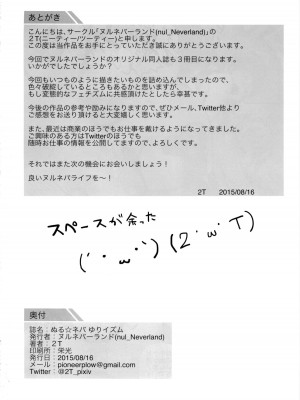 あとがき
こんにちは、サークル「ヌルネバーランド(nul_Neverland)」の
2T(ニーティー/ツーティー)と申します。
この度は当作品をお手にとっていただき誠にありがとうございます。
今回でヌルネバーランドのオリジナル同人誌も3冊目になります。
いかがでしたでしょうか?
今回もいつものように描きたいものを詰め込んでしまったので、
色々破綻しているところもあるかと思いますが、
もし変態的なフェチズムに共感頂けたとしたら幸甚です。
今後の作品の参考や励みになりますので、ぜひメール、Twitter他より
ご感想をお送り頂けると大変嬉しく思います。
また、最近は商業のほうでもお仕事を戴けるようになってきました。
ご興味のある方はTwitterのほうでも
随時お仕事の情報を公開してますので、よろしくです。
それではまた次の機会にお会いしましょう!
良いヌルネバライフを〜!
2T 2015/08/16
スペースが余った
(´・ω・`)(2・ω・T)
奥付
誌名:ぬる☆ネバ ゆりイズム
発行者:ヌルネバーランド(nul_Neverland)
著者:2T
印刷所:栄光
発行日:2015/08/16
メール:pioneerplow@gmail.com
Twitter:@2T_pixiv